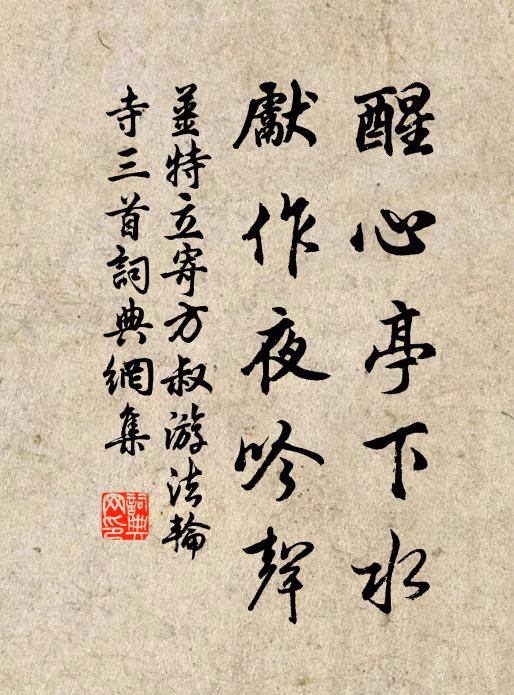 醒心亭下水
獻作夜吟聲
姜特立寄方叔游法輪
寺三首詞典網集
詞典网印